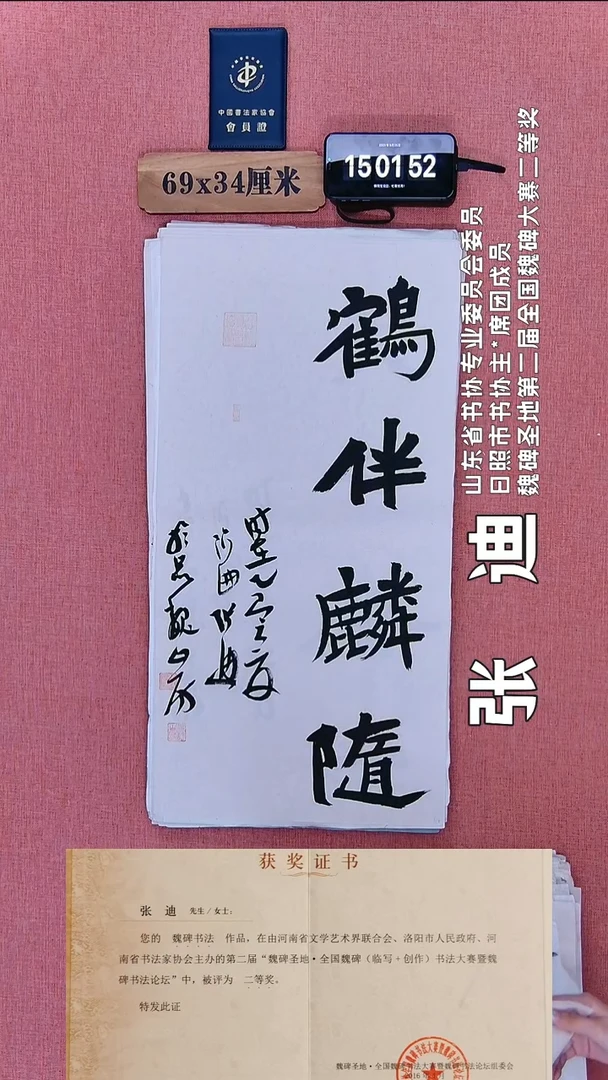 中國書法家協會
會員證
69x34厘米
15 01 52
山东省书协专业委员会委员
日照市书协主*席团成员
魏碑圣地第二届全国魏碑大赛二等奖
张迪
鶴伴麟隨
获奖证书
张 迪 先生/女士：
您的 魏碑书法 作品，在由河南省文学艺术界联合会、洛阳市人民政府、河
南省书法家协会主办的第二届“魏碑圣地·全国魏碑（临写+创作）书法大赛暨魏
碑书法论坛”中，被评为 二等奖。
特发此证
魏碑圣地·全国魏碑书法大赛暨魏碑书法论坛组委会